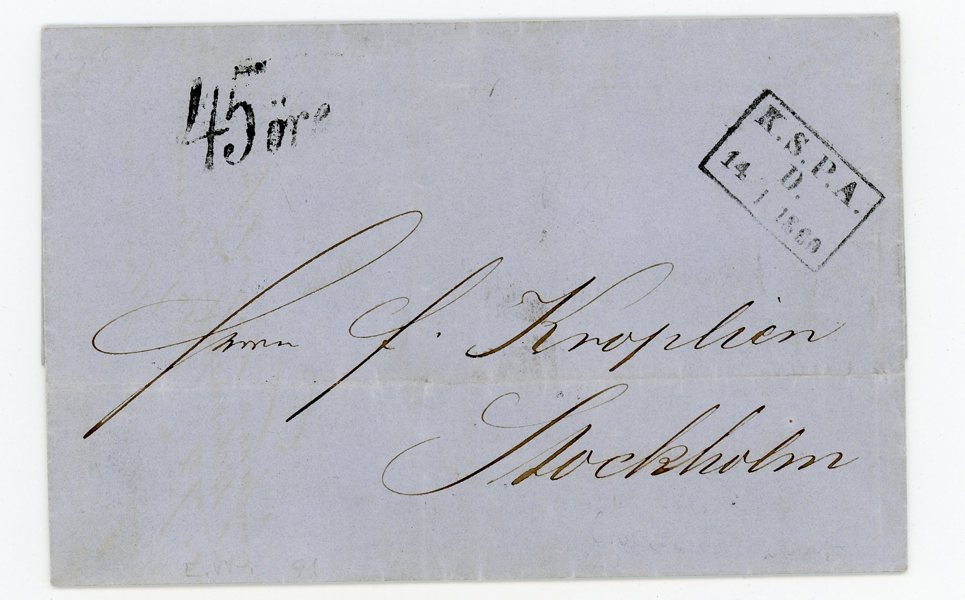 45 öre
K.S.P.A.
D.
14 1860
Herrn J. Kroplien
Stockholm